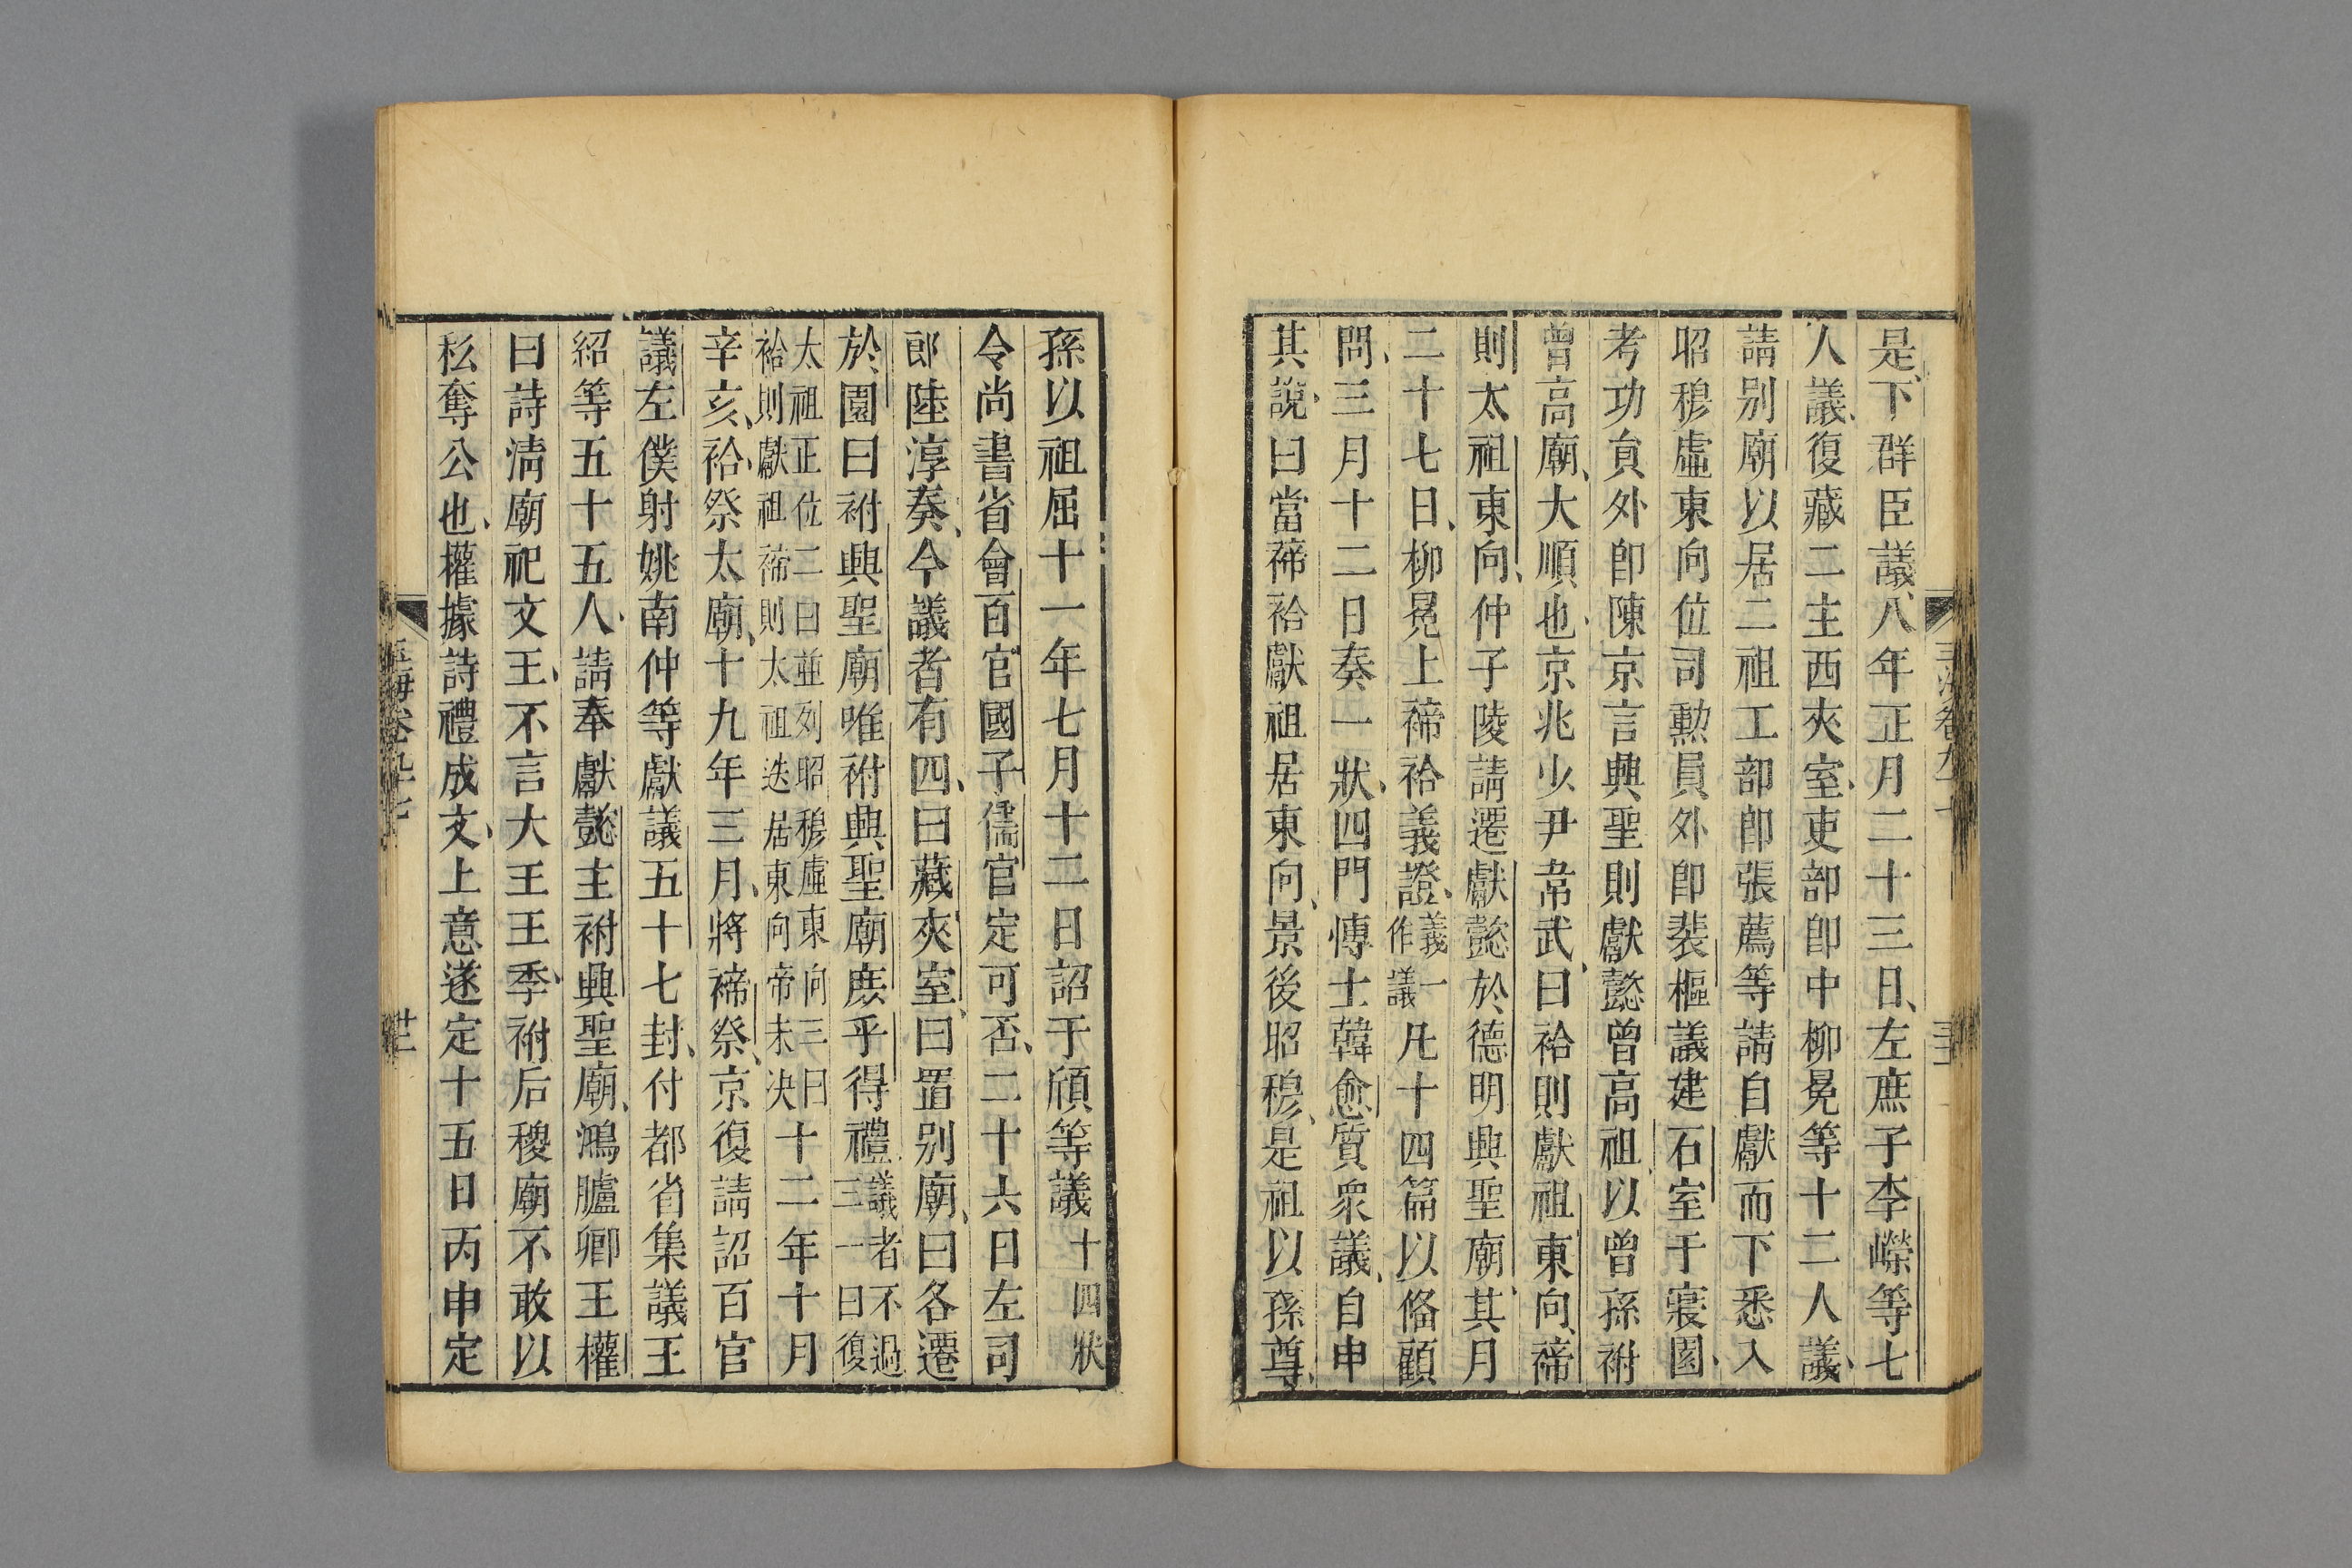 是下群臣議八年正月二十三日左庶子李嶸等七
人議復藏二主西夾室吏部郎中柳冕等十二人議
請别廟以居二祖工部郎張薦等請自獻而下悉入
昭穆虛東向位司勲員外郎裴樞議建石室于寢園
考功負外郎陳京言興聖則獻懿曾高祖以曾孫祔
曾高廟大順也京兆少尹韋武曰祫則獻祖東向禘
則太祖東向仲子陵請遷獻懿於德明興聖廟其月
二十七日柳冕上禘祫義證義一作議凡十四篇以俻顧
問三月十二日奏一狀四門愽士韓愈質衆議自申
其說曰當禘祫獻祖居東向景後昭穆是祖以孫尊
孫以祖屈十一年七月十二日詔于頎等議十四狀
令尚書省會百官國子儒官定可否二十六日左司
郎陸淳奏今議者有四曰藏夾室曰置别廟曰各遷
於園曰祔興聖廟唯祔興聖廟庻乎得禮議者不過三一曰復
太祖正位二曰並列昭穆虛東向三曰祫則獻祖禘則太祖迭居東向帝未决十二年十月
辛亥祫祭太廟十九年三月將禘祭京復請詔百官
議左僕射姚南仲等獻議五十七封付都省集議王
紹等五十五人請奉獻懿主祔興聖廟鴻臚卿王權
曰詩淸廟祀文王不言大王王季祔后稷廟不敢以
私奪公也權據詩禮成文上意遂定十五日丙申定
玉海卷九十七